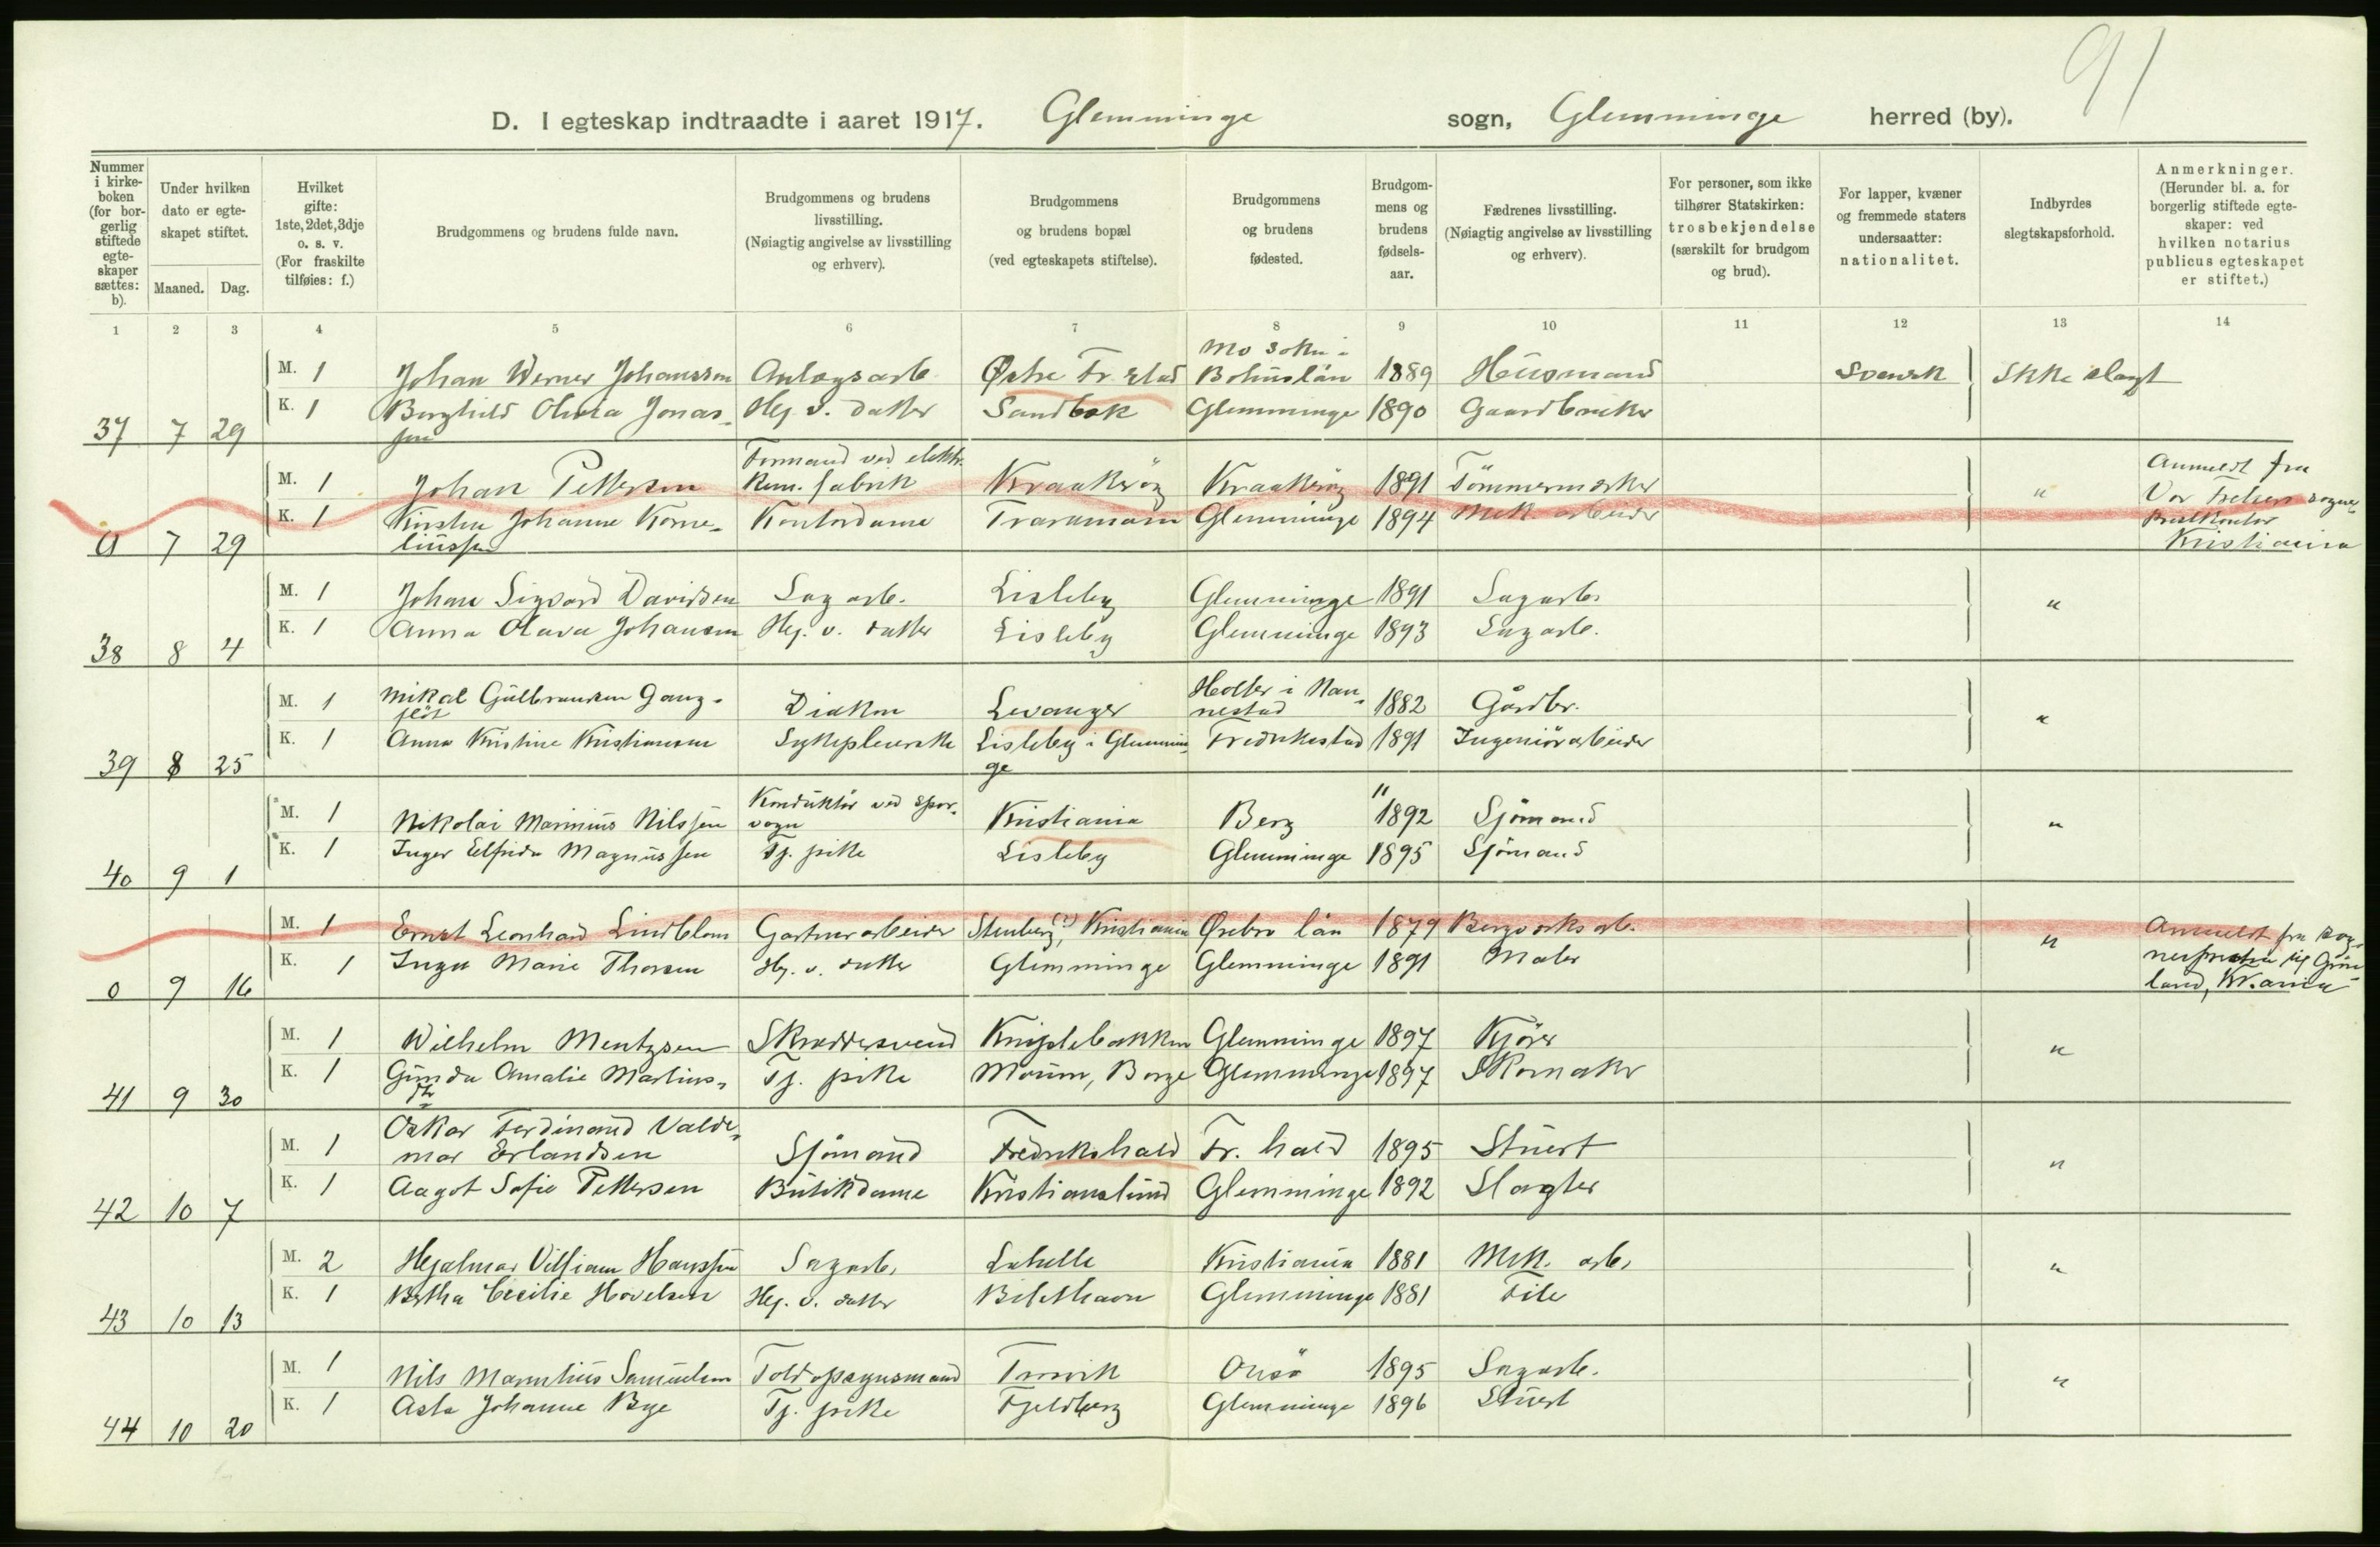 91
D. I egteskap indtraadte i aaret 1917. Glemminge sogn, Glemminge herred (by).
Nummer i kirkeboken (for borgerlig stiftede egteskaper sættes: b).
Under hvilken dato er egteskapet stiftet.
Maaned. Dag.
Hvilket gifte: 1ste, 2det, 3dje o. s. v. (For fraskilte tilføies: f.)
Brudgommens og brudens fulde navn.
Brudgommens og brudens livsstilling. (Nøiagtig angivelse av livsstilling og erhverv).
Brudgommens og brudens bopæl (ved egteskapets stiftelse).
Brudgommens og brudens fødested.
Brudgommens og brudens fødselsaar.
Fædrenes livsstilling. (Nøiagtig angivelse av livsstilling og erhverv).
For personer, som ikke tilhører Statskirken: trosbekjendelse (særskilt for brudgom og brud).
For lapper, kvæner og fremmede staters undersaatter: nationalitet.
Indbyrdes slegtskapsforhold.
Anmerkninger. (Herunder bl. a. for borgerlig stiftede egteskaper: ved hvilken notarius publicus egteskapet er stiftet.)
1 2 3 4 5 6 7 8 9 10 11 12 13 14
Mo sokn i
M. 1 Johan Werner Johansson Anlægsarb. Østre Fr.stad Bohuslän 1889 Husmand Svensk Ikke slægt
K. 1 Borghild Olivia Jonas- Hj. v. datter Sandbæk Glemminge 1890 Gaardbruker
37 7 29 sen
Formand ved elektr.
M. 1 Johan Pettersen kem. fabrik Kraakerøy Kraakerøy 1891 Tömmermerker " Anmeldt fra
K. 1 Kirsten Johanne Korne- Kontordame Trosvik Glemminge 1894 Mek. arbeider Vor Frelsers sogne-
0 7 29 liussen prestkontor
Kristiania
M. 1 Johan Sigvard Davidsen Sagarb. Lisleby Glemminge 1891 Sagarb. "
K. 1 Anna Olava Johansen Hj. v. datter Lisleby Glemminge 1893 Sagarb.
38 8 4
M. 1 Mikal Gulbrandsen Gang- Diakon Levanger Holter i Nannestad 1882 Gårdbr. "
K. 1 Anna Kristine Kristiansen Sykepleierske Lisleby i Glemmin- Fredrikstad 1891 Ingeniörarbeider
39 8 25 ge
Konduktör ved spor-
M. 1 Nikolai Marinius Nilssen vogn Kristiania Berg 1892 Sjömand "
K. 1 Inger Elfrida Magnussen Tj. pike Lisleby Glemminge 1895 Sjömand
40 9 1
M. 1 Ernst Leonhard Lindblom Gartnerarbeider Stenberg (?), Kristiania Ørebro län 1879 Bergverksarb. " Anmeldt fra sog-
K. 1 Inga Marie Thorsen Hj. v. datter Glemminge Glemminge 1891 Maler nepresten til Grøn-
0 9 16 land, Kr.ania
M. 1 Wilhelm Mentzsen Skræddersvend Kniplebakken Glemminge 1897 Kjörer "
K. 1 Gunda Amalie Martins- Tj. pike Moum, Borge Glemminge 1897 Skomaker
41 9 30
Oskar Ferdinand Valde-
M. 1 mar Erlandsen Sjömand Fredrikshald Fr. hald 1895 Stuert "
K. 1 Aagot Sofie Pettersen Butikdame Kristianslund Glemminge 1892 Slagter
42 10 7
M. 2 Hjalmar Villiam Hanssen Sagarb. Labelle Kristiania 1881 Mek. arb. "
K. 1 Bertha Cecilie Hovelsen Hj. v. datter Glemminge 1881
43 10 13
M. 1 Nils Samuelsen Toldopsynsmand Trosvik Onsö 1895 Sagarb. "
K. 1 Asta Johanne Bye Tj. pike Fjeldberg Glemminge 1896 Stuert
44 10 20